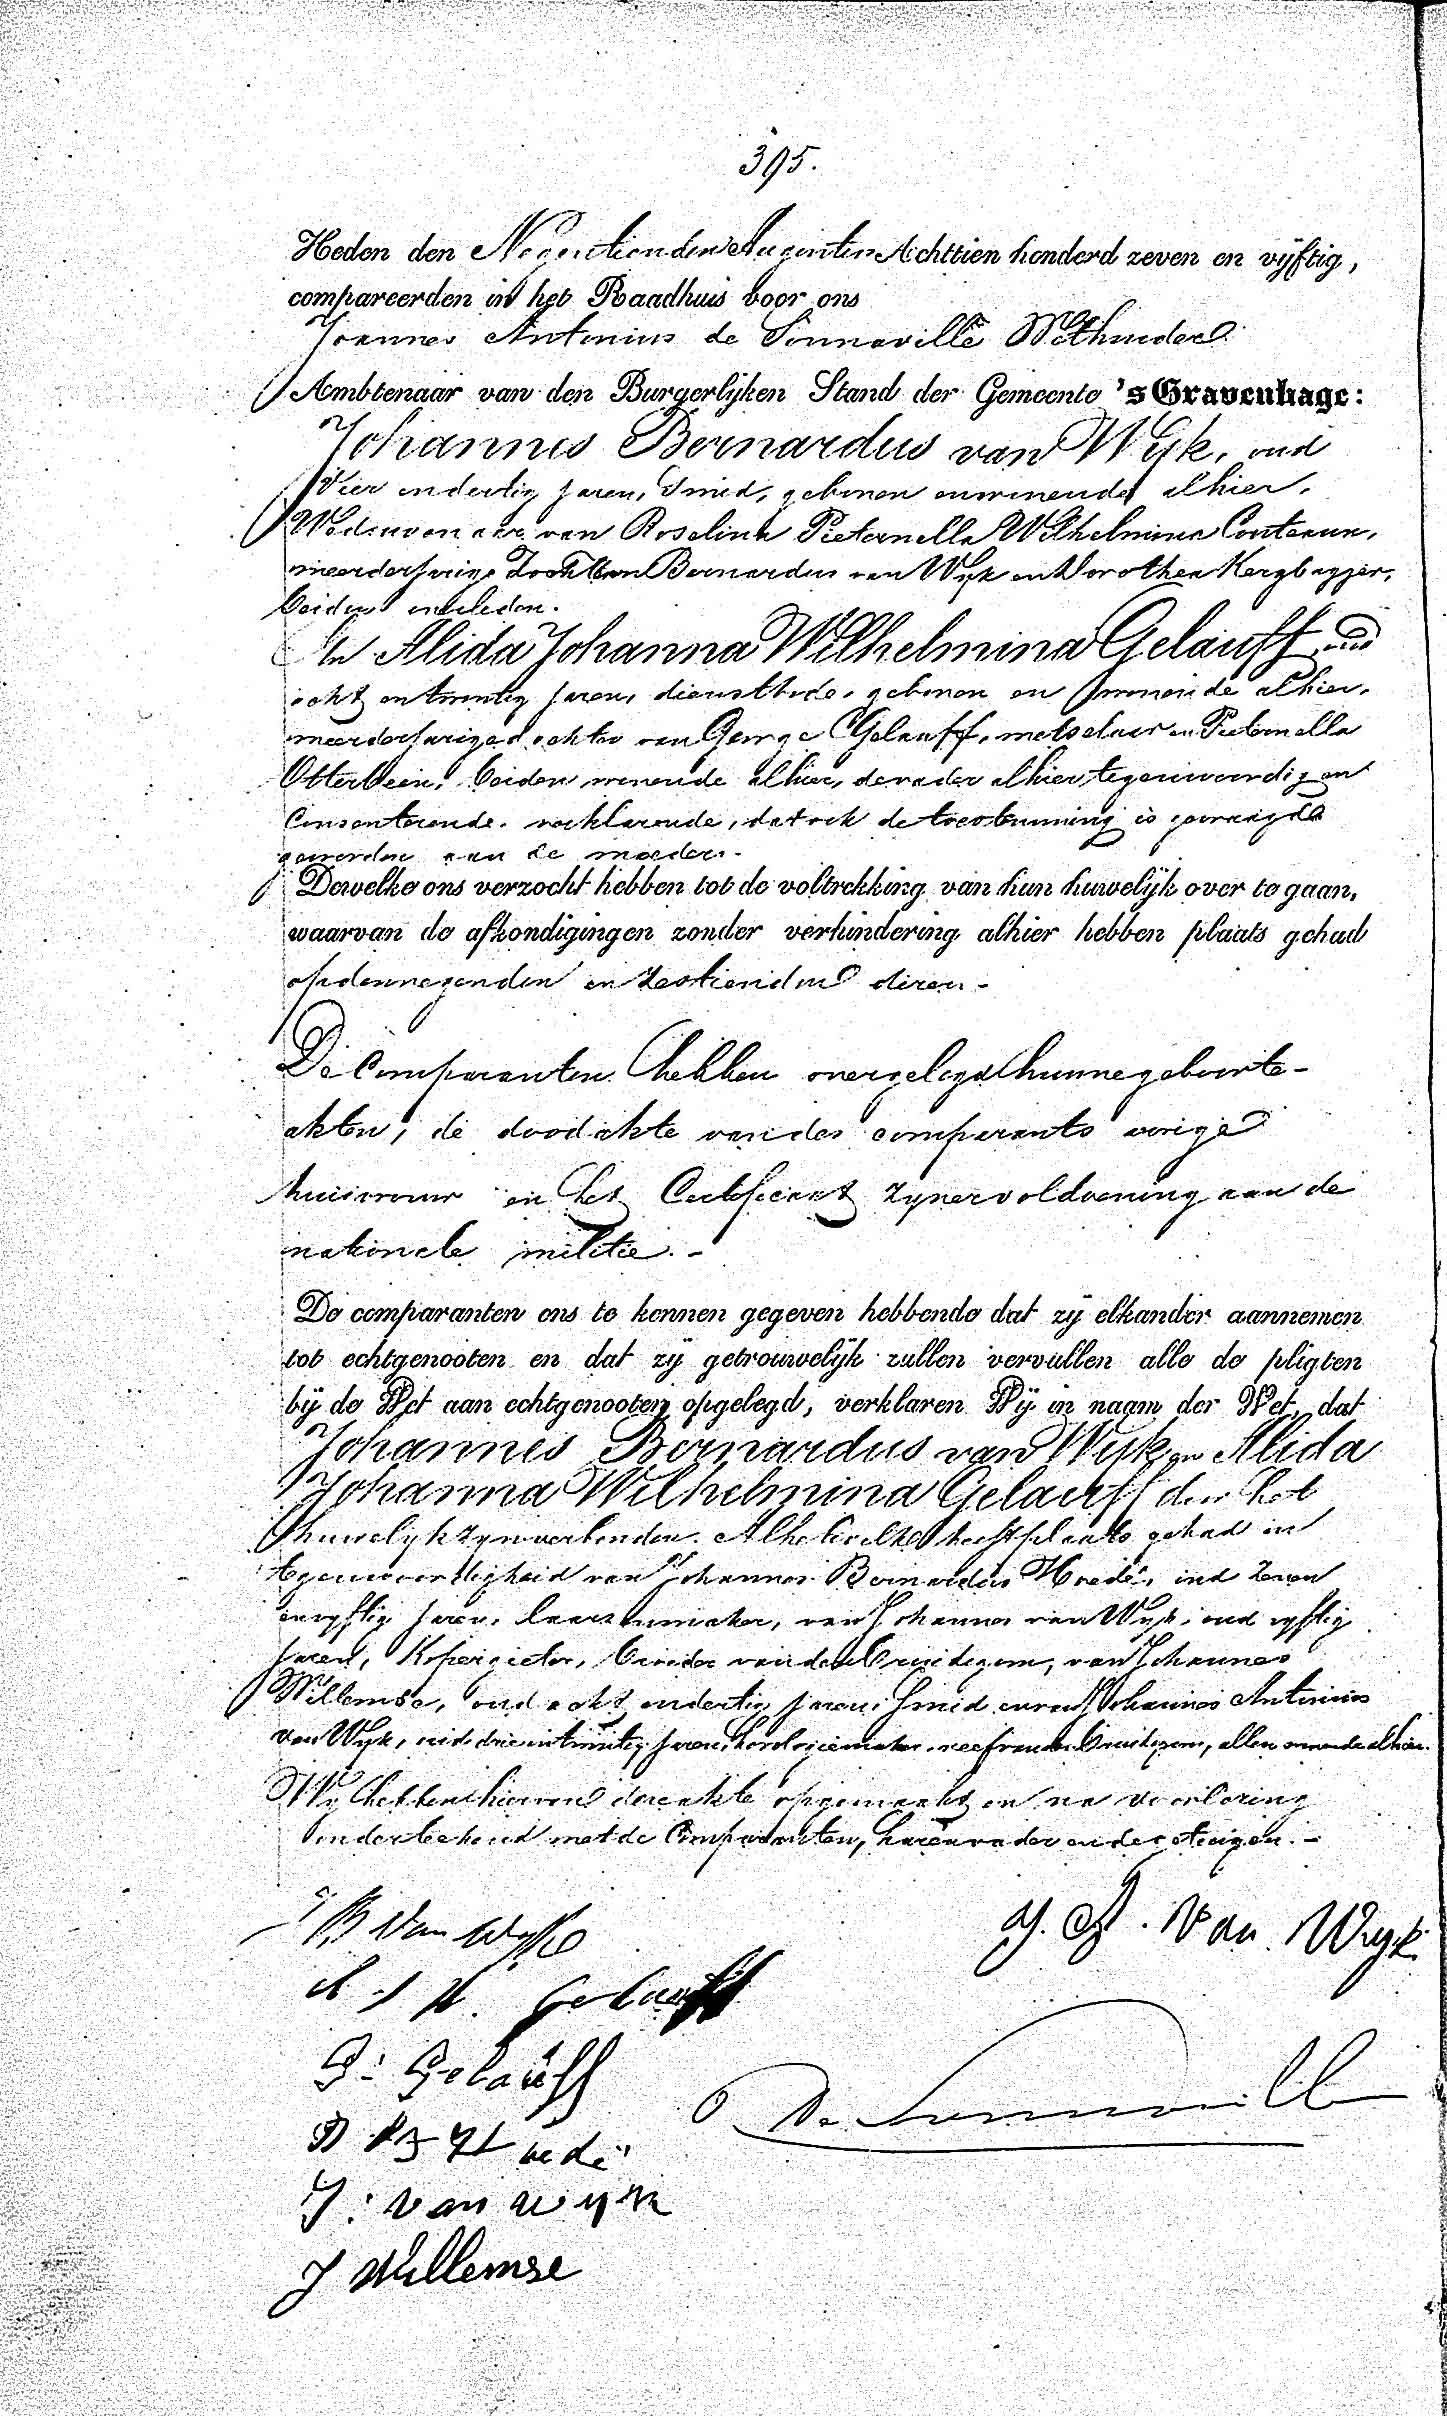 395.
Heden den Negentienden Augustus Achttien honderd zeven en vijftig,
compareerden in het Raadhuis voor ons
Joannes Antonius de Sonnaville Wethouder
Ambtenaar van den Burgerlijken Stand der Gemeente 's Gravenhage:
Johannes Bernardus van Wijk, oud
Vier en dertig jaren, Smid, geboren en wonende alhier,
Weduwenaar van Roselina Pieternella Wilhelmina
meerderjarige Zoon van Bernardus van Wijk en Dorothea
beiden overleden.
En Alida Johanna Wilhelmina Gelauff, oud
acht en twintig jaren, dienstbode, geboren en wonende alhier,
meerderjarige dochter van George Gelauff, metselaar en Pieternella
Otterbein, beiden wonende alhier, de vader alhier tegenwoordig en
Consenterende, verklarende, dat ook de toestemming is gevraagd
geworden aan de moeder.-
Dewelke ons verzocht hebben tot de voltrekking van hun huwelijk over te gaan,
waarvan de afkondigingen zonder verhindering alhier hebben plaats gehad
op den negenden en Zestienden dezer.-
De Comparanten hebben overgelegd hunne geboorte-
akten, de doodakte van des comparants vorige
huisvrouw en het Certificaat zijner voldoening aan de
nationale militie.-
De comparanten ons te kennen gegeven hebbende dat zij elkander aannemen
tot echtgenooten en dat zij getrouwelijk zullen vervullen alle de pligten
bij de Wet aan echtgenooten opgelegd, verklaren Wij in naam der Wet, dat
Johannes Bernardus van Wijk en Alida
Johanna Wilhelmina Gelauff door het
huwelijk zijn verbonden. Alhetwelke heeft plaats gehad in
tegenwoordigheid van Johannes Bernardus Hoedé, oud Zeven
en vijftig jaren, laarzenmaker, van Johannes van Wijk, oud vijftig
jaren, Kopergieter, broeder van den Bruidegom, van Johannes
Willemse, oud acht en dertig jaren, Smid en van Johannes Antonius
van Wijk, oud drie en twintig jaren, horologiemaker, neef van den Bruidegom, allen wonende alhier.
Wij hebben hiervan deze akte opgemaakt en na voorlezing
onderteekend met de Comparanten, haren vader en de getuigen.-
J B van Wijk
J. A. van Wijk
A J W. Gelauff
G: Gelauff
De Sonnaville
Hoedé
J: van Wijk
J Willemse